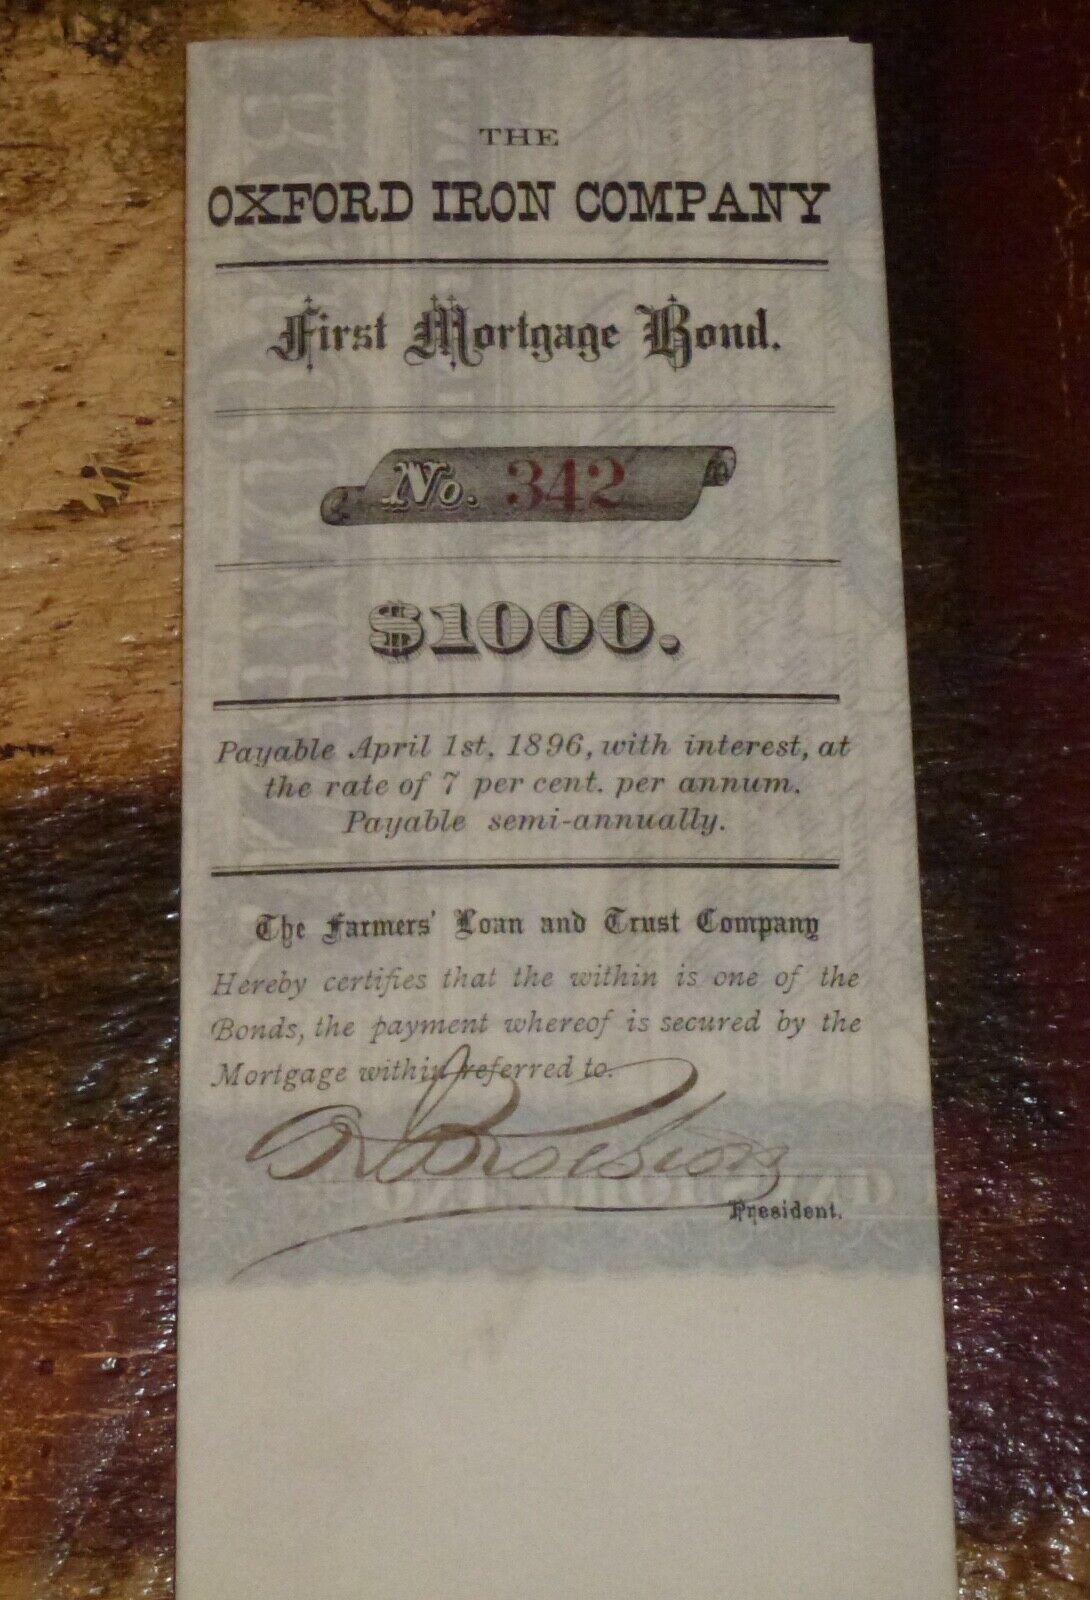 THE
OXFORD IRON COMPANY
First Mortgage Bond.
No. 342
$1000.
Payable April 1st. 1896, with interest, at
the rate of 7 per cent. per annum.
Payable semi-annually.
The Farmers' Loan and Trust Company
Hereby certifies that the within is one of the
Bonds, the payment whereof is secured by the
Mortgage within referred to.
President.